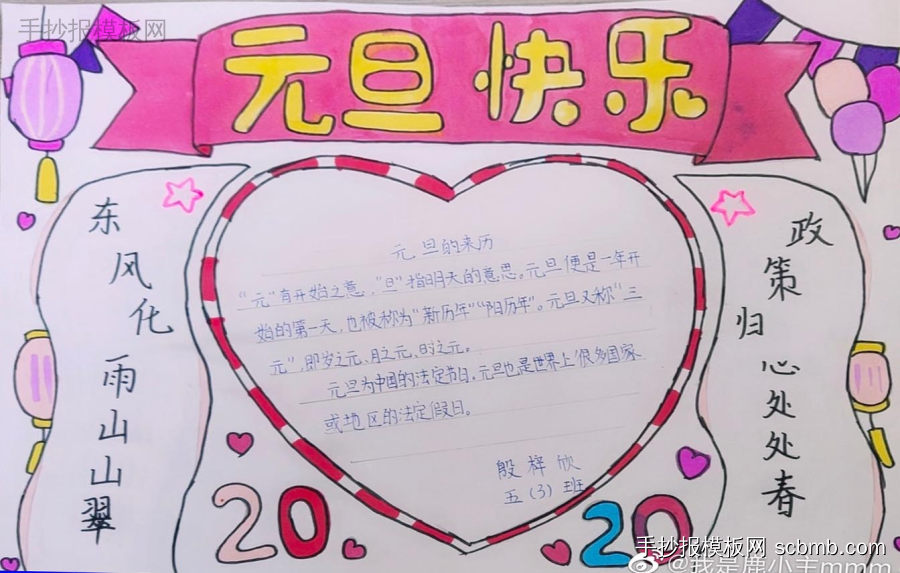 手抄报模板网
元旦快乐
东风化雨山山翠
元旦的来历
“元”有开始之意，“旦”指明天的意思。元旦便是一年开
始的第一天，也被称为“新历年”“阳历年”。元旦又称“三
元”，即岁之元、月之元、时之元。
元旦为中国的法定节日。元旦也是世界上很多国家
或地区的法定假日。
殷梓欣
五（3）班
政策归心处处春
2020
手抄报模板网 scbmb.com
@我是鹿小羊mmmm